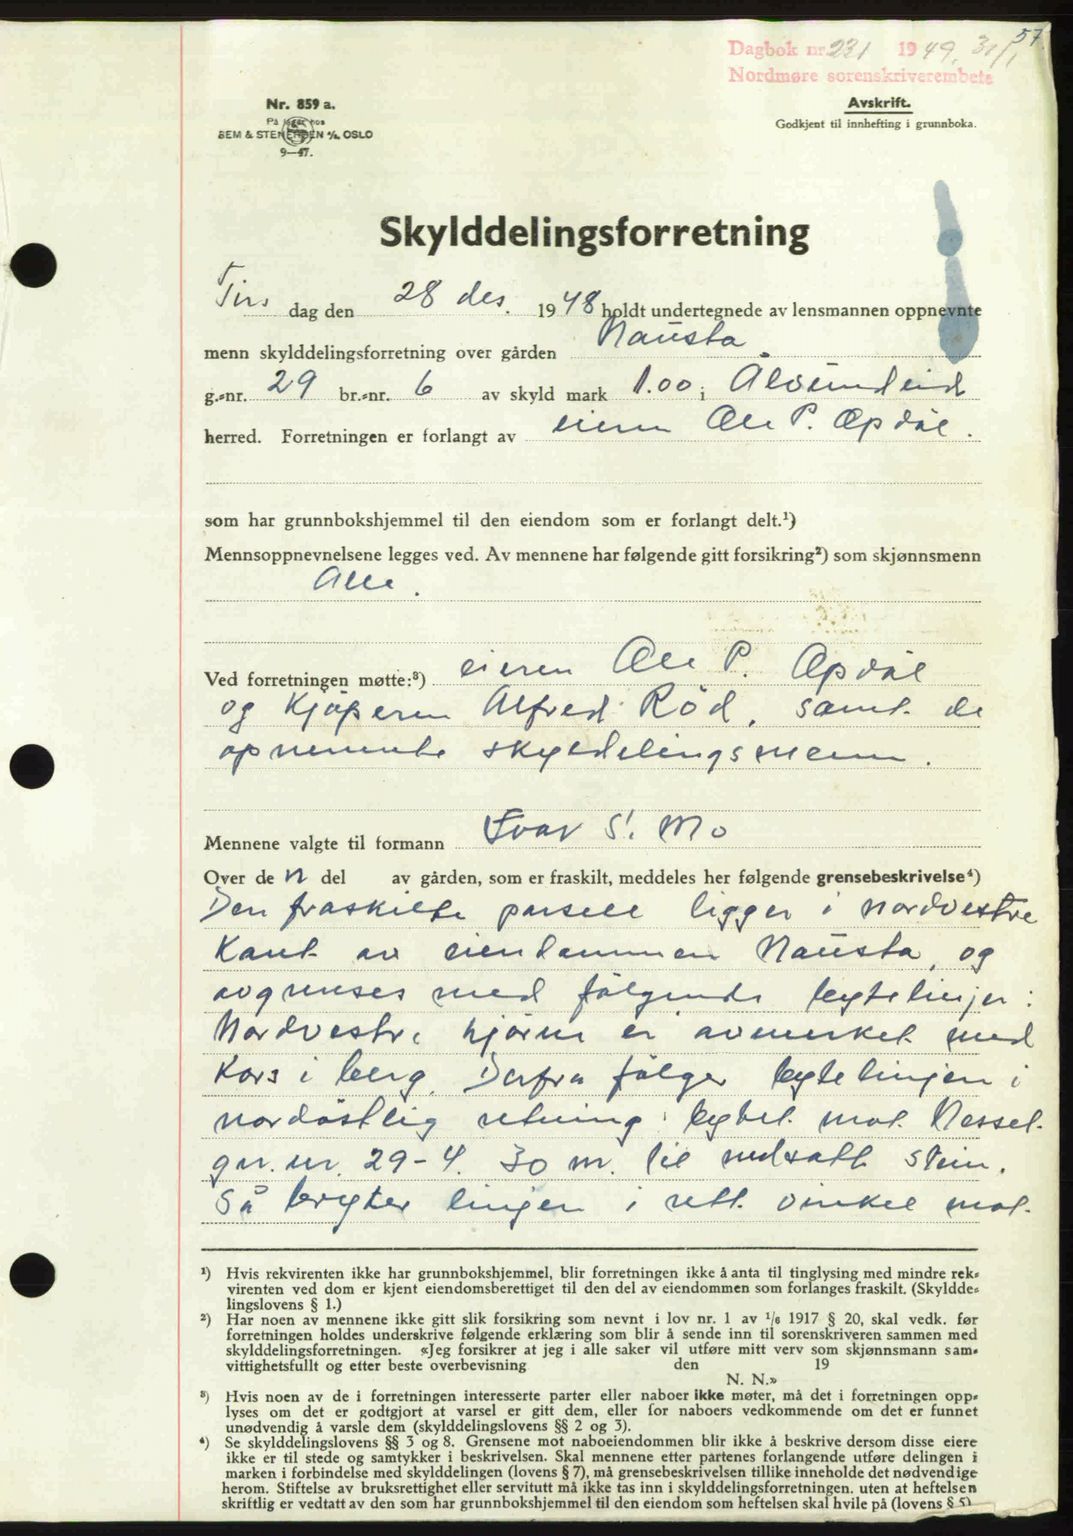 57.
Dagbok nr. 231 1949, 31/1
Nordmøre sorenskriverembete
Nr. 859 a.
På lager hos
SEM & STENERSEN A/S, OSLO
9—47.
Avskrift.
Godkjent til innhefting i grunnboka.
Skylddelingsforretning
Tirs dag den 28 des. 1948 holdt undertegnede av lensmannen oppnevnte
menn skylddelingsforretning over gården Nausta.
g.-nr. 29 br.-nr. 6 av skyld mark 1.00 i Ålvundeid
herred. Forretningen er forlangt av eieren Ole P. Opdöl.
som har grunnbokshjemmel til den eiendom som er forlangt delt.¹)
Mennsoppnevnelsene legges ved. Av mennene har følgende gitt forsikring²) som skjønnsmenn
Alle.
Ved forretningen møtte:³) eieren Ole P. Opdöl
og Kjöperen Alfred Röd, samt de
opnevnte skyldelingsmenn.
Mennene valgte til formann Ivar S. Mo
Over de n del av gården, som er fraskilt, meddeles her følgende grensebeskrivelse⁴)
Den fraskilte parsell ligger i nordvestre
Kant av eiendommen Nausta, og
avgrenses med fölgende bytelinjer:
Nordvestre hjörne er avmerket med
Kors i berg. Derfra fölger bytelinjen i
nordöstlig retning i bytet mot Nessel-
gnr. nr. 29-4. 30 m. til nedsatt stein.
Så bryter linjen i rett vinkel mot
¹) Hvis rekvirenten ikke har grunnbokshjemmel, blir forretningen ikke å anta til tinglysing med mindre rek-
virenten ved dom er kjent eiendomsberettiget til den del av eiendommen som forlanges fraskilt. (Skyldde-
lingslovens § 1.)
²) Har noen av mennene ikke gitt slik forsikring som nevnt i lov nr. 1 av 1/6 1917 § 20, skal vedk. før
forretningen holdes underskrive følgende erklæring som blir å sende inn til sorenskriveren sammen med
skylddelingsforretningen. «Jeg forsikrer at jeg i alle saker vil utføre mitt verv som skjønnsmann sam-
vittighetsfullt og etter beste overbevisning den 19
N. N.»
³) Hvis noen av de i forretningen interesserte parter eller naboer ikke møter, må det i forretningen opp-
lyses om det er godtgjort at varsel er gitt dem, eller for naboers vedkommende om det er funnet
unødvendig å varsle dem (skylddelingslovens §§ 2 og 3).
⁴) Se skylddelingslovens §§ 3 og 8. Grensene mot naboeiendommen blir ikke å beskrive dersom disse eiere
ikke er til stede og samtykker i beskrivelsen. Skal mennene etter partenes forlangende utføre delingen i
marken i forbindelse med skylddelingen (lovens § 7), må grensebeskrivelsen tillike inneholde det nødvendige
herom. Stiftelse av bruksrettighet eller servitutt må ikke tas inn i skylddelingsforretningen. uten at heftelsen
skriftlig er vedtatt av den som har grunnbokshjemmel til den eiendom som heftelsen skal hvile på (lovens § 5).